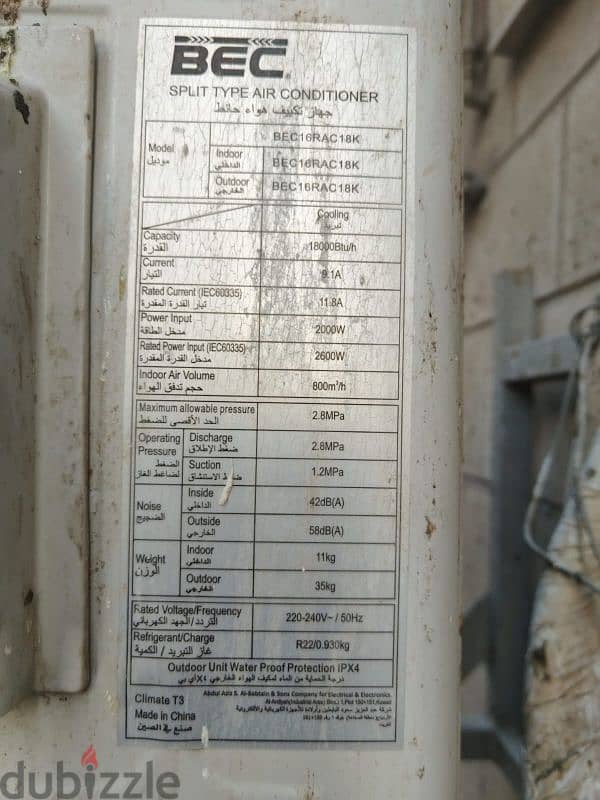 BEC
SPLIT TYPE AIR CONDITIONER
جهاز تكييف هواء حائط
Model موديل BEC16RAC18K
Indoor الداخلي BEC16RAC18K
Outdoor الخارجي BEC16RAC18K
Cooling تبريد
Capacity القدرة 18000Btu/h
Current التيار 9.1A
Rated Current (IEC60335) تيار القدرة المقدرة 11.8A
Power Input مدخل الطاقة 2000W
Rated Power Input (IEC60335) مدخل القدرة المقدرة 2600W
Indoor Air Volume حجم تدفق الهواء 800m³/h
Maximum allowable pressure الحد الأقصى للضغط 2.8MPa
Operating Pressure الضغط لضاغط الغاز
Discharge ضغط الإطلاق 2.8MPa
Suction ضغط الاستنشاق 1.2MPa
Noise الضجيج
Inside الداخلي 42dB(A)
Outside الخارجي 58dB(A)
Weight الوزن
Indoor الداخلي 11kg
Outdoor الخارجي 35kg
Rated Voltage/Frequency التردد/الجهد الكهربائي 220-240V~ / 50Hz
Refrigerant/Charge غاز التبريد / الكمية R22/0.930kg
Outdoor Unit Water Proof Protection IPX4
درجة الحماية من الماء لمكيف الهواء الخارجي X4 آي بي
Climate T3
Made in China
صنع في الصين
Abdul Aziz S. Al-Babtain & Sons Company for Electrical & Electronics.
Al-Ardiyah(Industrial Area) Bloc.: 1,Plot 150+151,Kuwait
شركة عبد العزيز سعود البابطين وأولاده للأجهزة الكهربائية والالكترونية
الكويت
dubizzle